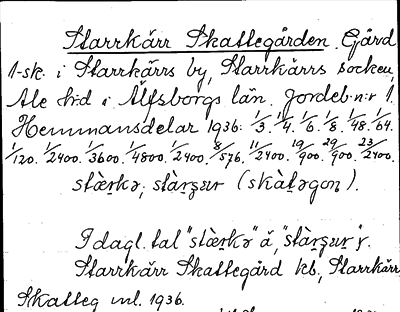 Starrkärr Skattegården. Gård
1-sk. i Starrkärrs by, Starrkärrs socken,
Ale h:d i Älfsborgs län. Jordeb:n:r 1.
Hemmansdelar 1936: 1/3. 1/4. 1/6. 1/8. 1/48. 1/64.
1/120. 1/2400. 1/3600. 1/4800. 1/2400. 8/576. 11/2400. 19/900. 29/900. 23/2400.
I dagl. tal "stàrkə" å, "stàrʒur" r.
Starrkärr Skattegård kb, Starrkärr
Skatteg ml. 1936.